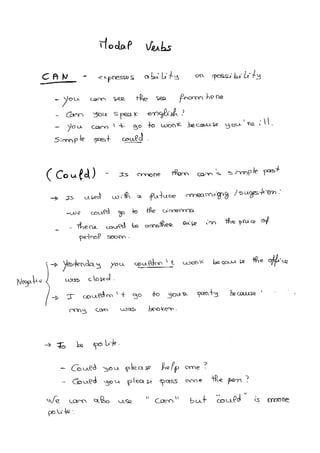 Modal Verbs
CAN - expresses ability or possibility
- You can see the sea from here
- Can you speak english?
- You can't go to work because you're ill.
Simple past could.
(Could) - Is more than can's simple past
→ Is used with a future meaning /sugestion:
-we could go to the cinema
- There could be another rise in the price of
petrol soon.
Negative
→ Yesterday you couldn't work because the office
was closed.
→ I couldn't go to your party because
my car was broken.
→ To be polite.
- Could you please help me?
- Could you please pass me the pen?
We can also use "can" but "could" is more
polite.